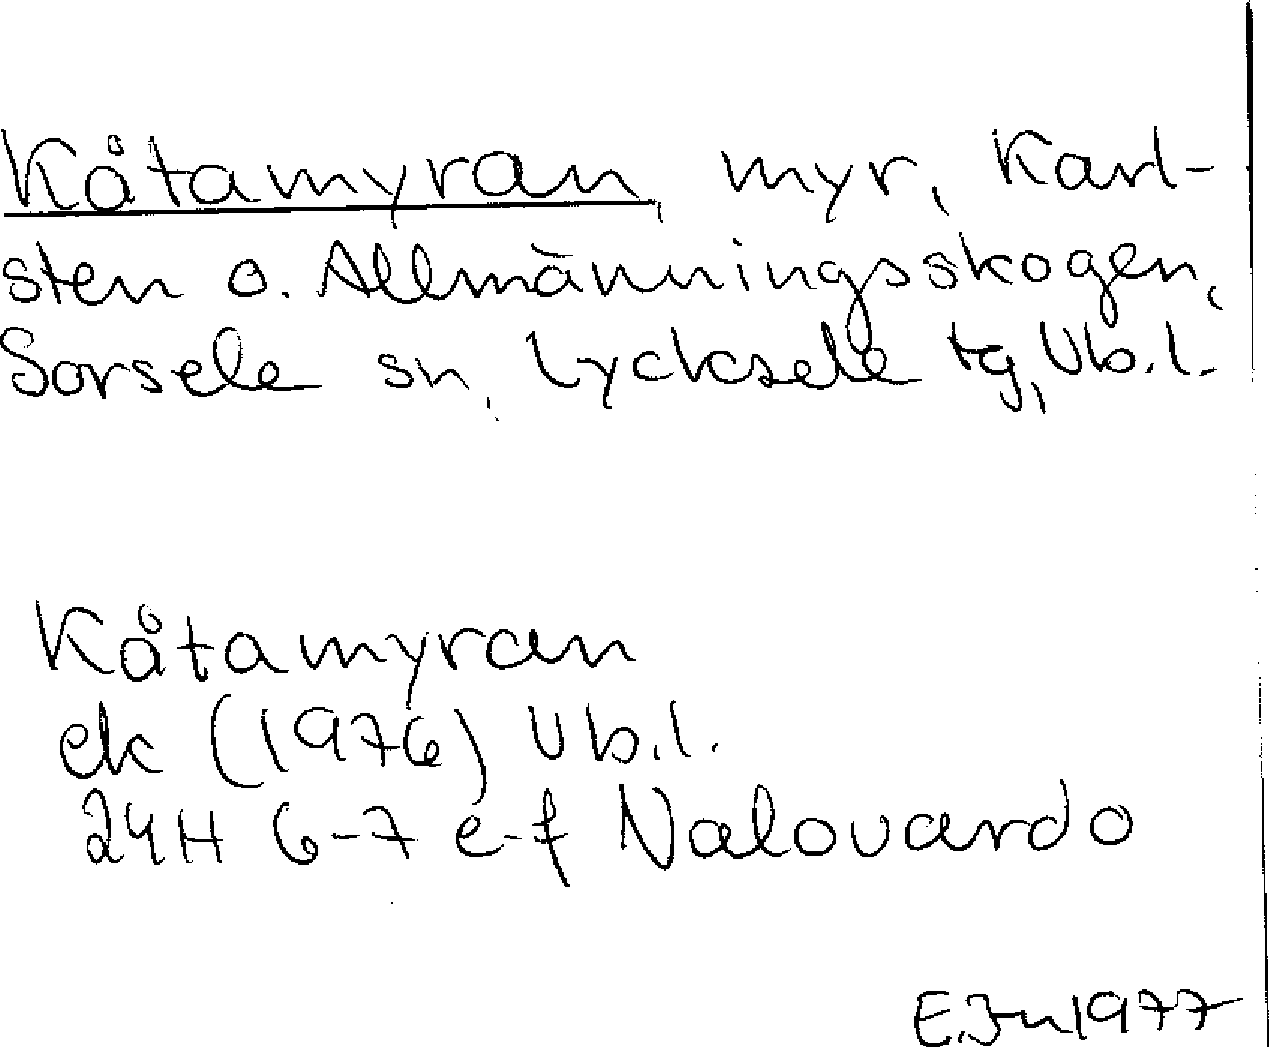 Kåtamyran, myr, Karl-
sten o. Allmänningsskogen,
Sorsele sn, Lycksele tg, Vb.l.
Kåtamyran
ek (1976) Vb.l.
24H 6-7 e-f Nalovardo
E.Jn 1977